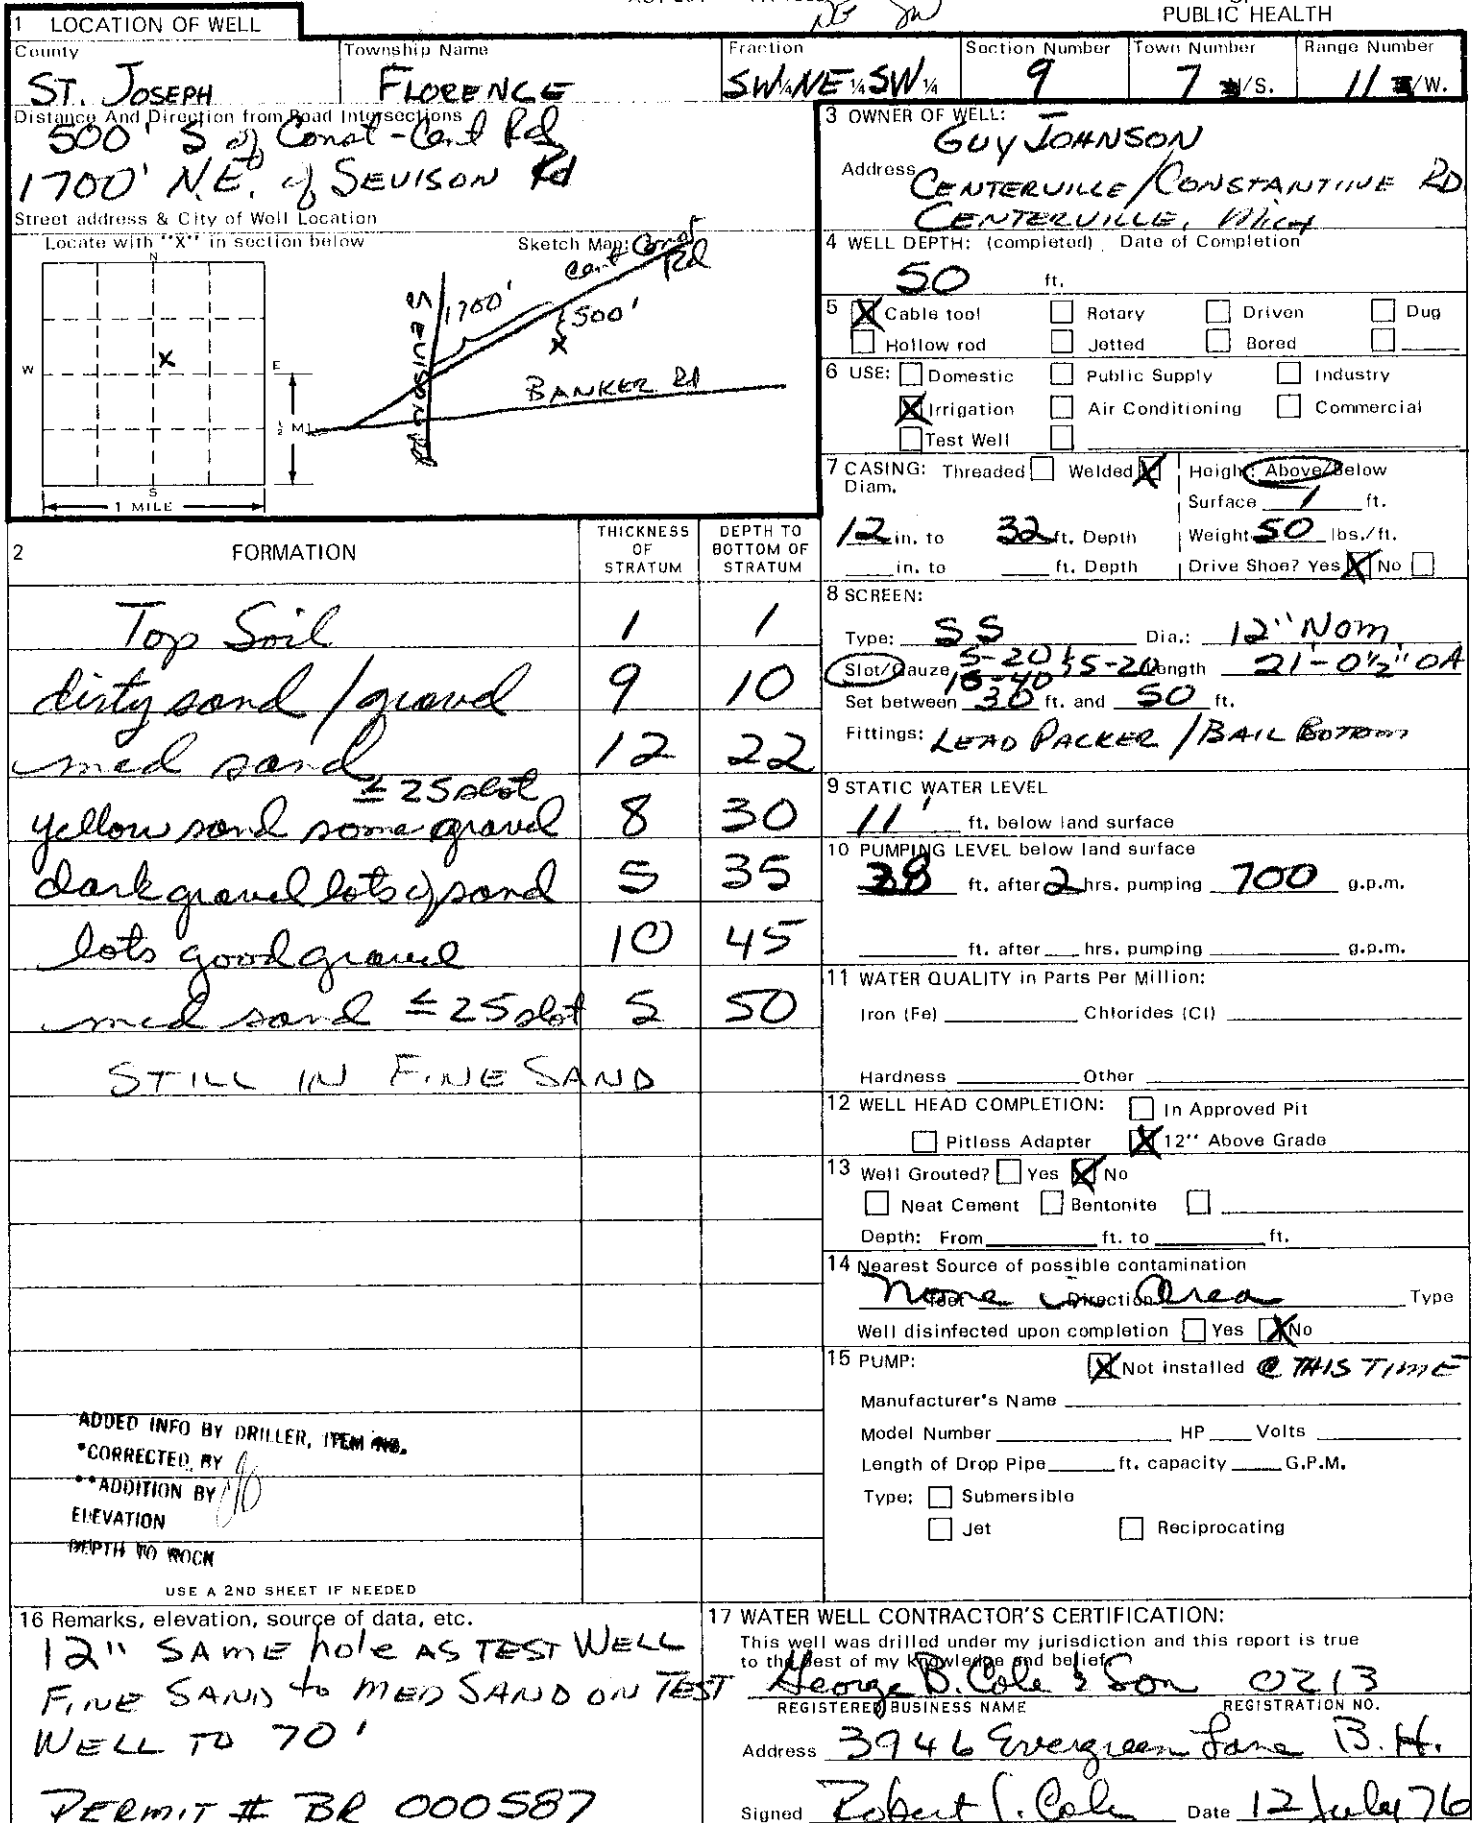 NE SW
PUBLIC HEALTH
1 LOCATION OF WELL
County
ST. JOSEPH
Township Name
FLORENCE
Fraction
SW¼ NE¼ SW¼
Section Number
9
Town Number
7 /S.
Range Number
11 /W.
Distance And Direction from Road Intersections
500' S of Const-Cent Rd
1700' N.E. of SEVISON Rd
Street address & City of Well Location
Locate with "X" in section below
Sketch Map:
N
W
E
S
X
½ MI.
1 MILE
Cent Const Rd
1700'
500'
X
SEVISON Rd
BANKER Rd
3 OWNER OF WELL:
GUY JOHNSON
Address
CENTERVILLE/CONSTANTINE RD
CENTERVILLE, MICH
4 WELL DEPTH: (completed) Date of Completion
50 ft.
5 X Cable tool Rotary Driven Dug
Hollow rod Jetted Bored
6 USE: Domestic Public Supply Industry
X Irrigation Air Conditioning Commercial
Test Well
7 CASING: Threaded Welded X Height: Above/Below
Diam.
Surface 1 ft.
12 in. to 32 ft. Depth Weight 50 lbs./ft.
in. to ft. Depth Drive Shoe? Yes X No
8 SCREEN:
Type: SS Dia.: 12" Nom.
Slot/Gauze 5-20 15-40 5-20 Length 21'-0½" OA
Set between 30 ft. and 50 ft.
Fittings: LEAD PACKER / BAIL BOTTOM
9 STATIC WATER LEVEL
11' ft. below land surface
10 PUMPING LEVEL below land surface
38 ft. after 2 hrs. pumping 700 g.p.m.
ft. after hrs. pumping g.p.m.
11 WATER QUALITY in Parts Per Million:
Iron (Fe) Chlorides (Cl)
Hardness Other
12 WELL HEAD COMPLETION: In Approved Pit
Pitless Adapter X 12" Above Grade
13 Well Grouted? Yes X No
Neat Cement Bentonite
Depth: From ft. to ft.
14 Nearest Source of possible contamination
None in Area
feet Direction Type
Well disinfected upon completion Yes X No
15 PUMP: X Not installed @ THIS TIME
Manufacturer's Name
Model Number HP Volts
Length of Drop Pipe ft. capacity G.P.M.
Type: Submersible
Jet Reciprocating
2 FORMATION
THICKNESS OF STRATUM
DEPTH TO BOTTOM OF STRATUM
Top Soil 1 1
dirty sand / gravel 9 10
med sand 12 22
≤ 25 slot
yellow sand some gravel 8 30
dark gravel lots of sand 5 35
lots good gravel 10 45
med sand ≤ 25 slot 5 50
STILL IN FINE SAND
ADDED INFO BY DRILLER, ITEM NO.
*CORRECTED BY
**ADDITION BY
ELEVATION
DEPTH TO ROCK
USE A 2ND SHEET IF NEEDED
16 Remarks, elevation, source of data, etc.
12" SAME hole AS TEST WELL
FINE SAND to MED SAND ON TEST
WELL TO 70'
PERMIT # BR 000587
17 WATER WELL CONTRACTOR'S CERTIFICATION:
This well was drilled under my jurisdiction and this report is true
to the best of my knowledge and belief.
George B. Cole & Son 0213
REGISTERED BUSINESS NAME REGISTRATION NO.
Address 3946 Evergreen Lane B.H.
Signed Robert Cole Date 12 July 76